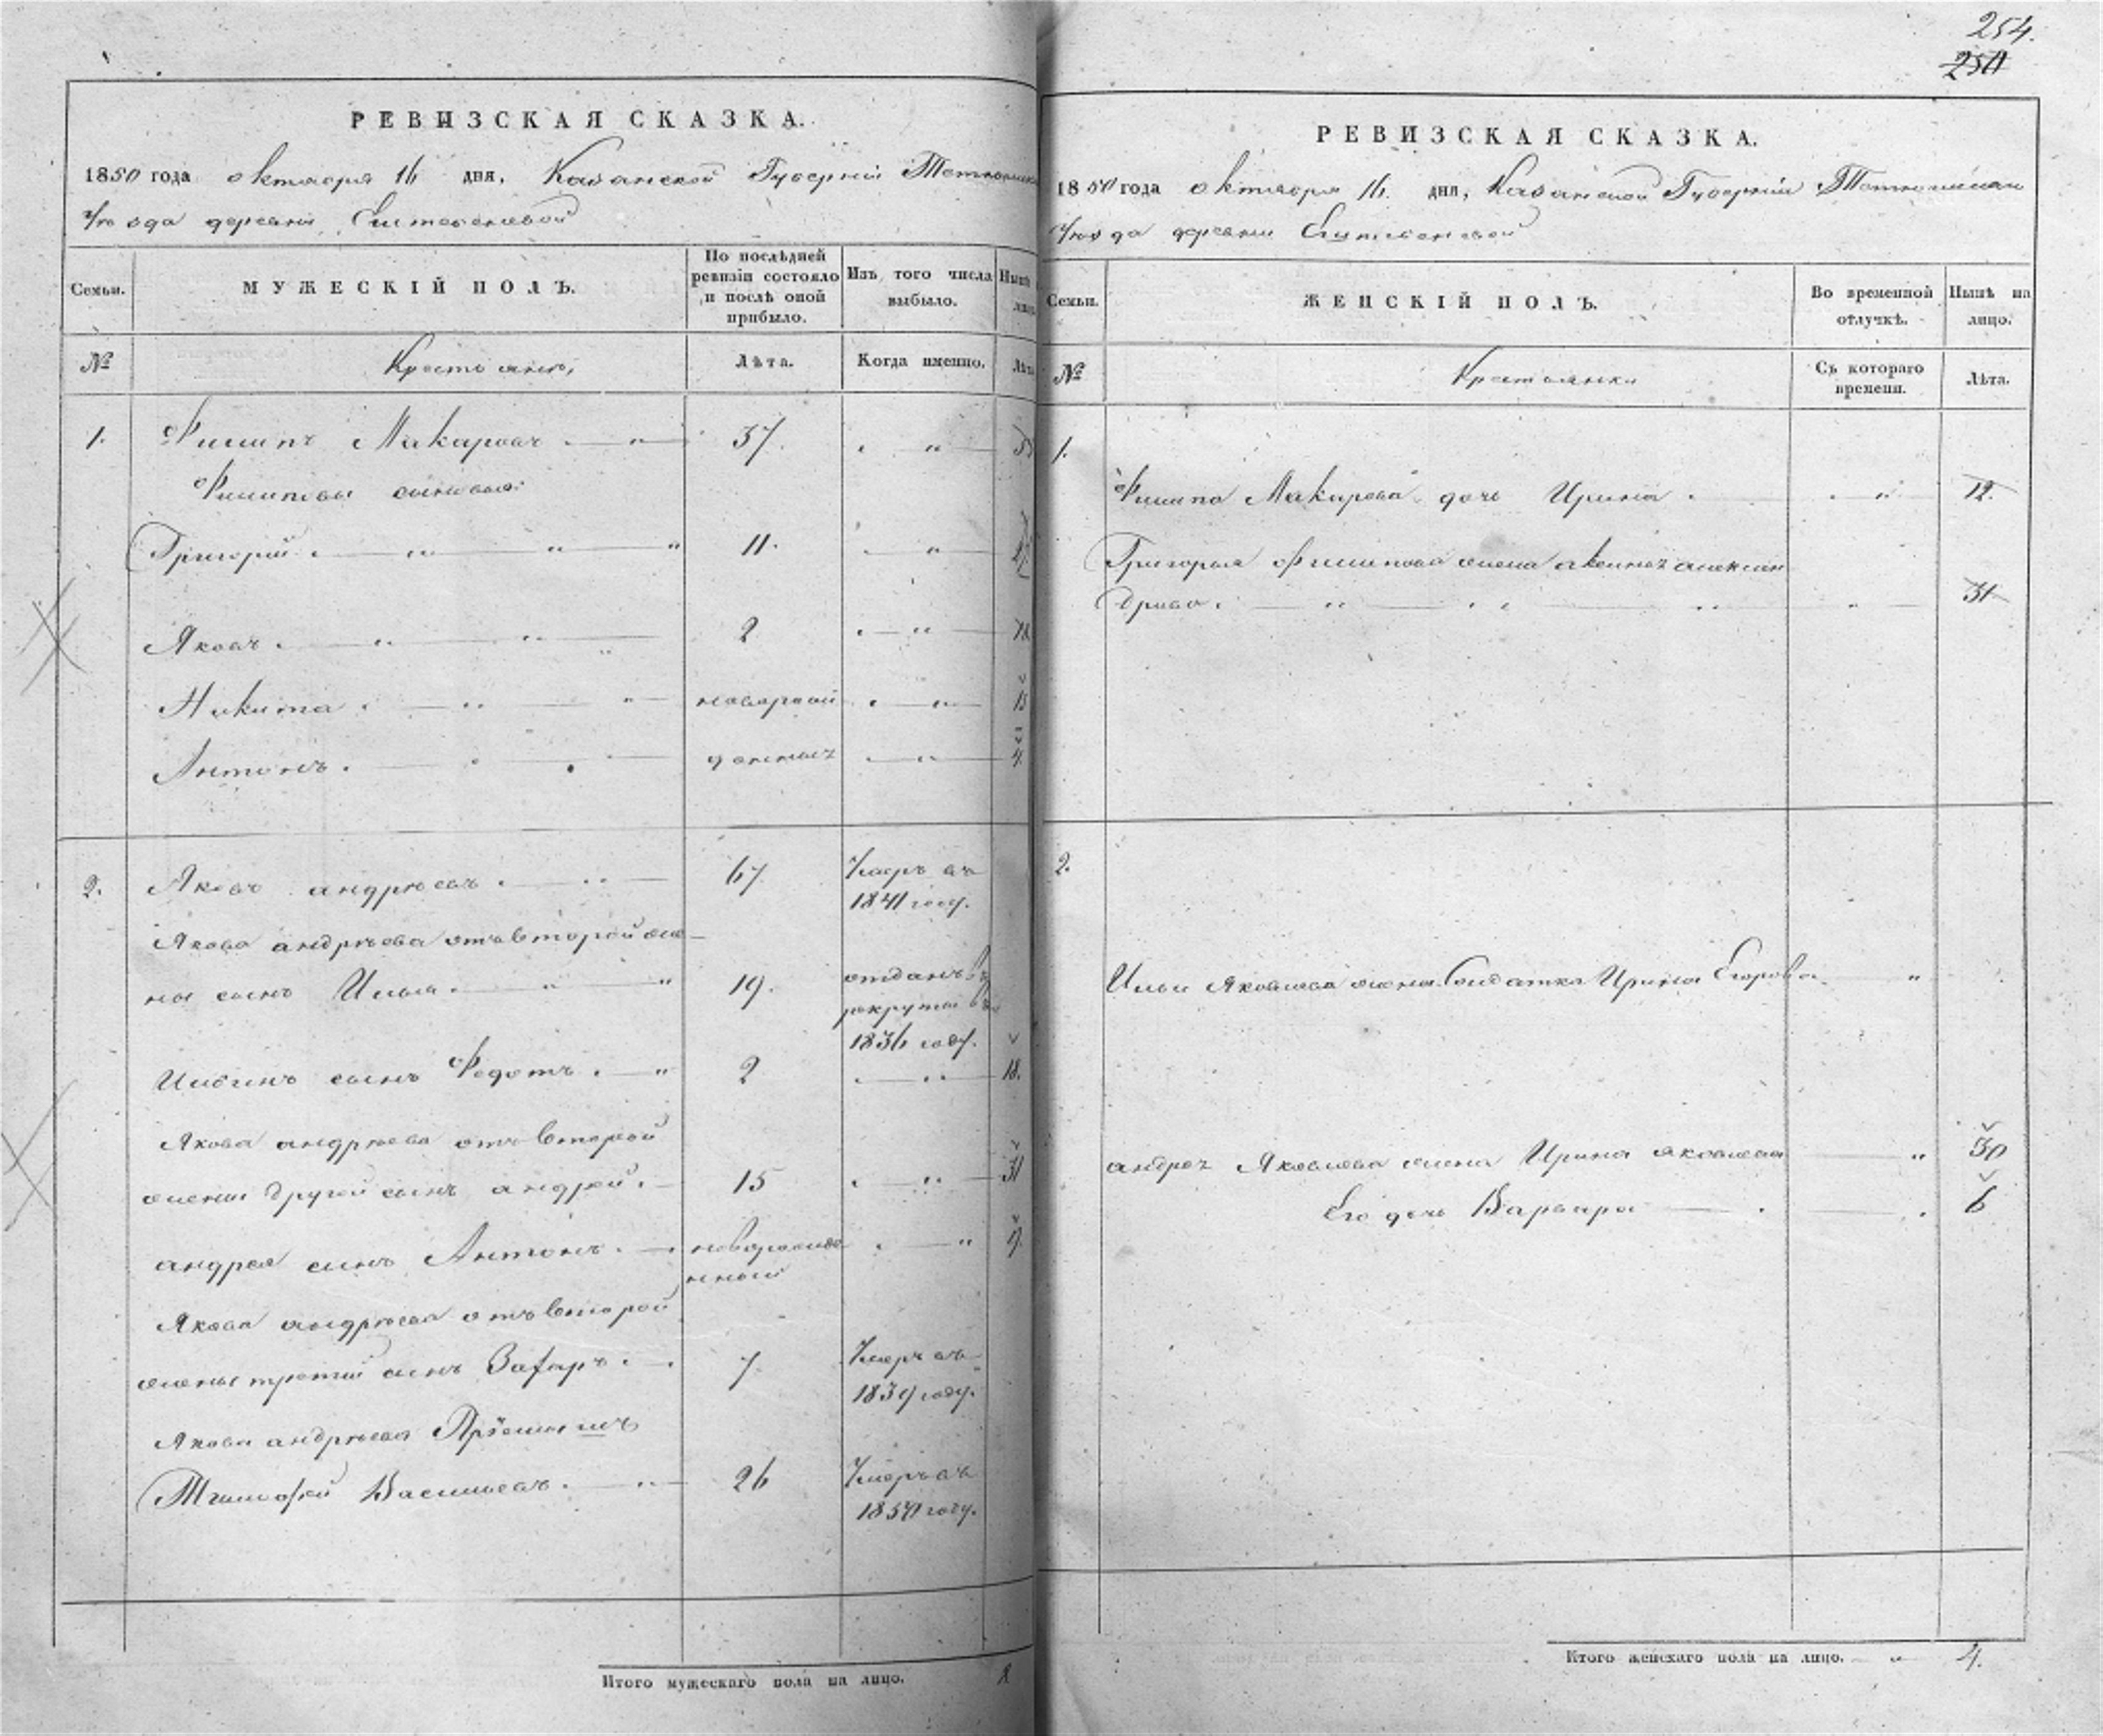 РЕВИЗСКАЯ СКАЗКА.
1850 года октября 16 дня, Казанской Губерніи
уезда деревни
Семьи.
МУЖЕСКІЙ ПОЛЪ.
По послѣдней ревизіи состояло и послѣ оной прибыло.
Изъ того числа выбыло.
Нынѣ
№
Крестьяне,
Лѣта.
Когда именно.
Лѣта
1. Филипъ Макаровъ 37.
Филиповы сыновья:
Григорій 11.
Яковъ 2
Никита новорож
Антонъ денныхъ 4.
2. Яковъ андрѣевъ 67 Умеръ въ
1841 году.
Якова андрѣева отъ второй же
ны сынъ Илья 19. отданъ въ
рекруты въ
1836 году.
Ильинъ сынъ Федотъ 2 18.
Якова андрѣева отъ второй
жены другой сынъ андрей 15 31
андрея сынъ Антонъ новорожде
нный
Якова андрѣева отъ второй
жены третій сынъ Захаръ 7 Умеръ въ
1839 году.
Якова андрѣева Пріемышъ
Тимофей Васильевъ 26 Умеръ въ
1850 году.
Итого мужескаго пола на лицо. 8
254.
250
РЕВИЗСКАЯ СКАЗКА.
1850 года октября 16. дня, Казанской Губерніи
уезда деревни
Семьи.
ЖЕНСКІЙ ПОЛЪ.
Во временной отлучкѣ.
Нынѣ на лицо.
№
Крестьянки
Съ котораго времени.
Лѣта.
1.
Филипа Макарова дочь Ирина 12.
Григорья Филипова жена алексан
дрова 31
2.
Ильи Яковлева жена Солдатка Ирина Егорова
андрея Яковлева жена Ирина яковлева 30
Его дочь Варвара 6
Итого женскаго пола на лицо. 4.